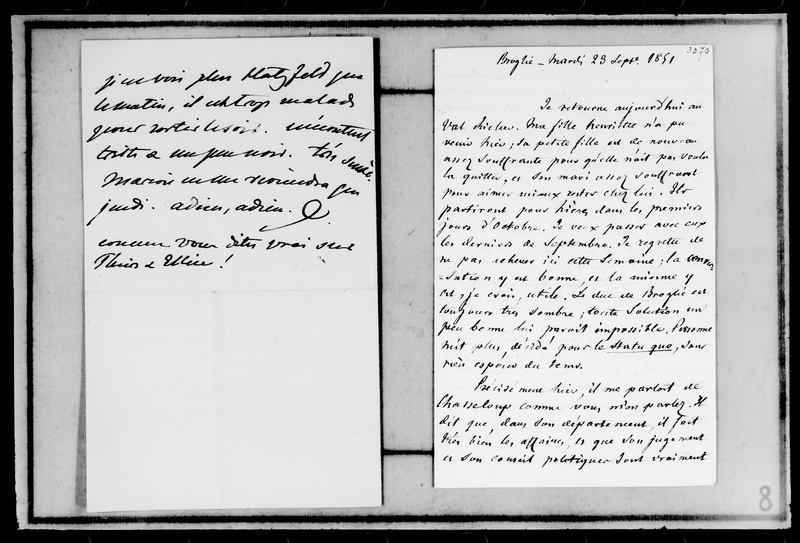 je ne vois plus Hatzfeld que
le matin, il est trop malade
pour sortir le soir. mécontent
triste & un peu noir. très sensé.
Marion ne me reviendra que
jeudi. adieu, adieu.
comme vous dites vrai sur
Thiers & Ellice !
3070
Broglie - Mardi 23 Sept. 1851
Je retourne aujourd'hui au
Val Richer. Ma fille Henriette n'a pu
venir hier ; sa petite fille est de nouveau
assez souffrante pour qu'elle n'ait pas voulu
la quitter, et son mari assez souffrant
pour aimer mieux rester chez lui. Ils
partiront pour hières dans les premiers
jours d'Octobre. Je veux passer avec eux
les derniers de Septembre. Je regrette de
ne pas achever ici cette semaine ; la conver
=sation y est bonne, et la mienne y
est, je crois, utile. Le duc de Broglie est
toujours très sombre ; toute solution un
peu bonne lui parait impossible. Personne
n'est plus décidé pour le statu quo, sans
rien espérer du tems.
Précisément hier, il me parlait de
Chasseloup comme vous m'en parlez. Il
dit que, dans son département, il fait
très bien les affaires, et que son jugement
et son conseil politiques sont vraiment
8